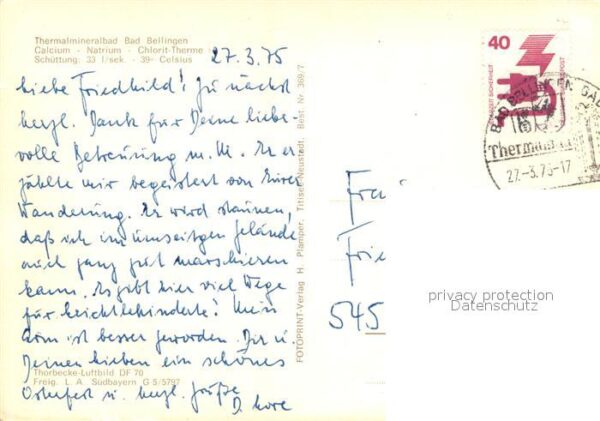 Thermalmineralbad Bad Bellingen
Calcium - Natrium - Chlorit-Therme
Schüttung: 33 l/sek. - 39° Celsius
27.3.75
Liebe Friedhild! Zu nächst
herzl. Dank für Deine liebe-
volle Betreuung m. M. Er er
zählte mir begeistert von Eurer
Wanderung. Er wird staunen,
daß ich im umseitgen Gelände
auch ganz gut marschieren
kann. Es gibt hier viel Wege
für Leichtbehinderte! Mein
Arm ist besser geworden. Dir u.
Deinen Lieben ein schönes
Osterfest u. herzl. Grüße
D. Lore
Thorbecke-Luftbild DF 70
Freig. L. A. Südbayern G 5/5797
FOTOPRINT-Verlag H. Plamper, Titisee-Neustadt, Best. Nr. 369/7
40
BAD BELLINGEN
27.-3.75-17
Frie
545
privacy protection
Datenschutz